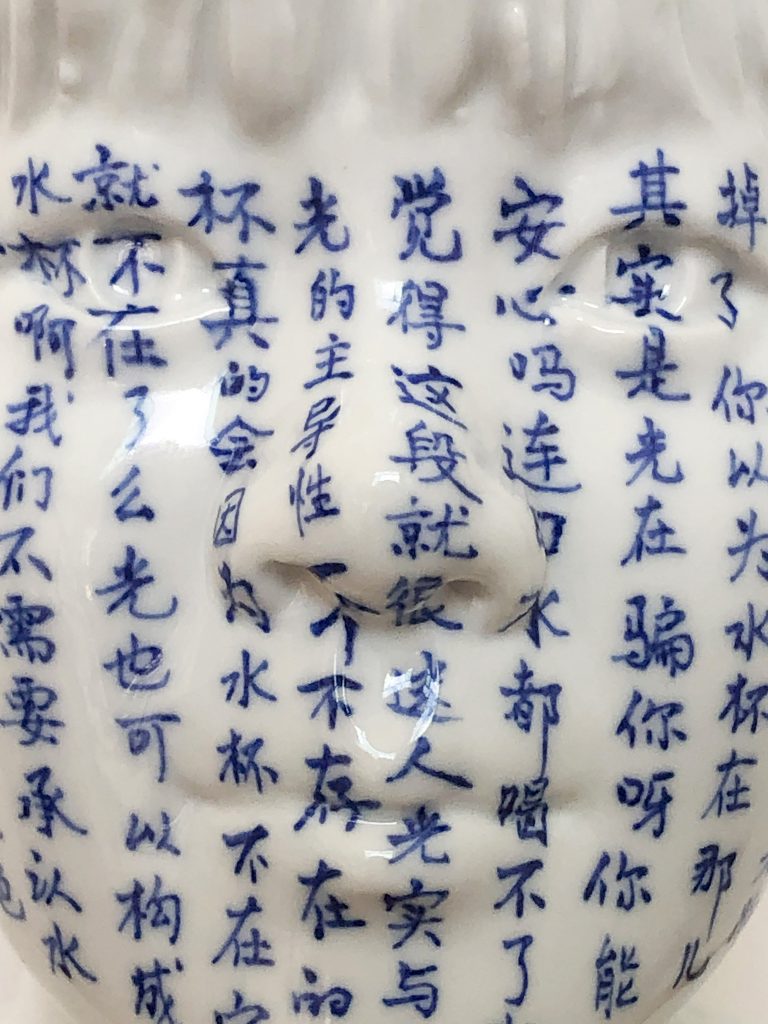 掉了你以为水杯在那儿
其实是光在骗你呀你能
安心吗连口水都喝不了
觉得这段就很迷人光实与
光的主导性一个不存在的
杯真的会因为水杯不在
就不在了么光也可以构成
水杯啊我们不需要承认水